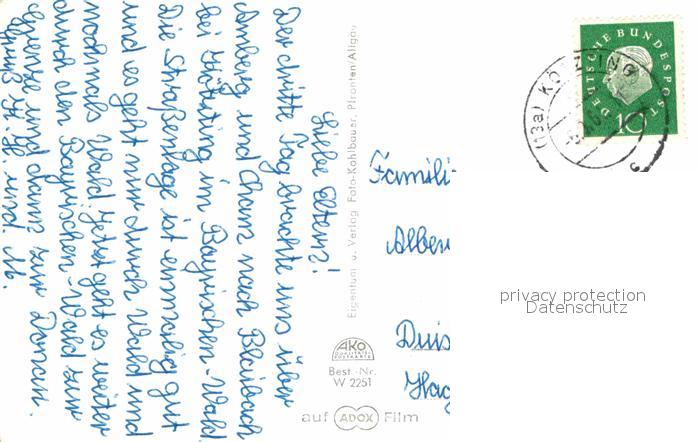 Liebe Eltern!
Der dritte Tag brachte uns über
Amberg und Cham nach Blaibach
bei Kötzting im Bayrischen-Wald.
Die Straßenlage ist einmalig gut
und es geht nur durch Wald und
nochmals Wald. Jetzt geht es weiter
durch den Bayrischen-Wald zur
Grenze und dann zur Donau.
Gruß
und
Eigentum u. Verlag Foto-Kohlbauer, Pfronten/Allgäu
AKO
QUALITÄTS-
POSTKARTE
Best.-Nr.
W 2251
auf ADOX Film
DEUTSCHE BUNDESPOST
10
(13a) KÖTZTING
Famili
Alber
Duis
Hag
privacy protection
Datenschutz